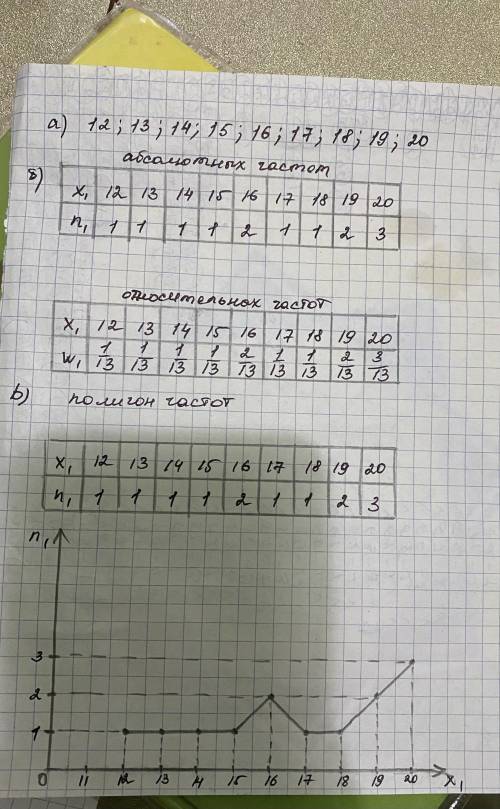 а) 12; 13; 14; 15; 16; 17; 18; 19; 20
абсалютных частот
б)
x₁ 12 13 14 15 16 17 18 19 20
n₁ 1 1 1 1 2 1 1 2 3
относительных частот
x₁ 12 13 14 15 16 17 18 19 20
w₁ 1/13 1/13 1/13 1/13 2/13 1/13 1/13 2/13 3/13
b) полигон частот
x₁ 12 13 14 15 16 17 18 19 20
n₁ 1 1 1 1 2 1 1 2 3
n₁
3
2
1
0 11 12 13 14 15 16 17 18 19 20 x₁